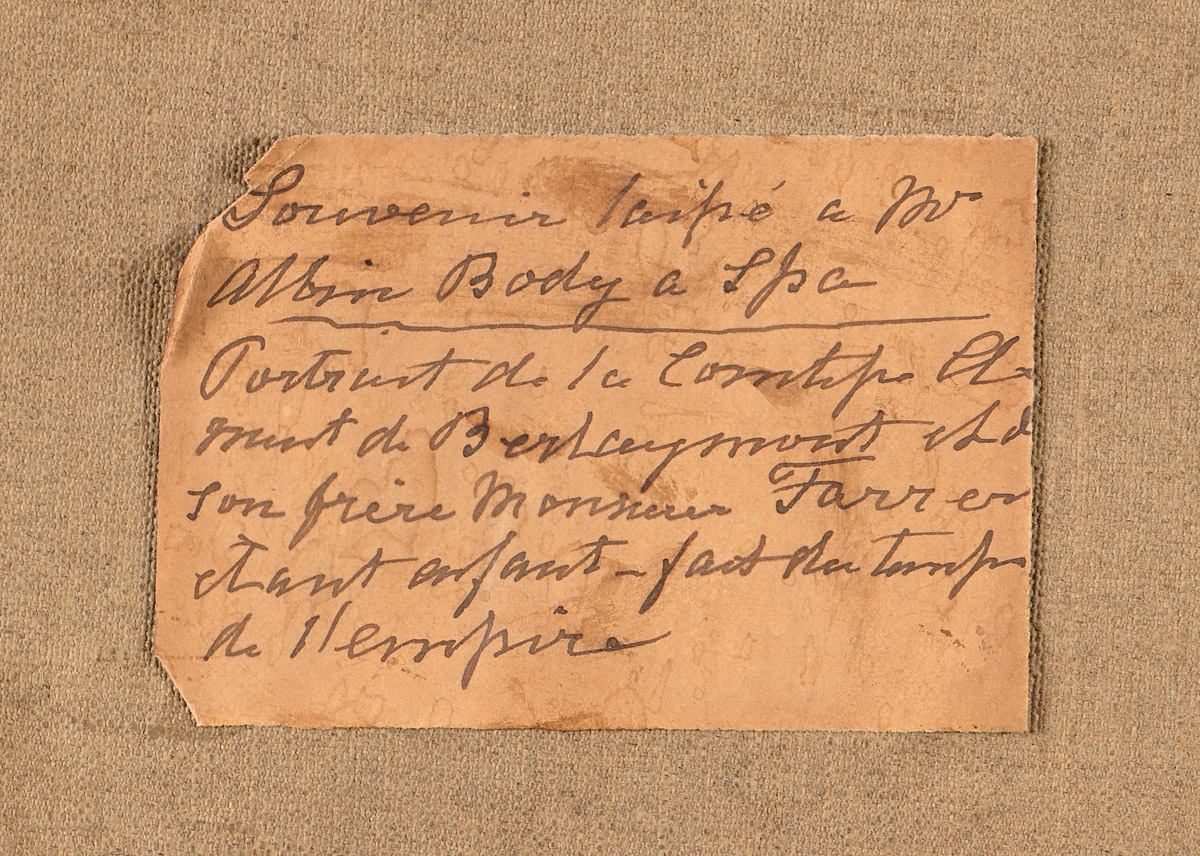 Souvenir laissé a Mr
Albin Body a Spa
Portrait de la Comtesse Cle
ment de Berlaymont et d
son frère Monsieur Farrer
étant enfant - fait du temps
de l'empire